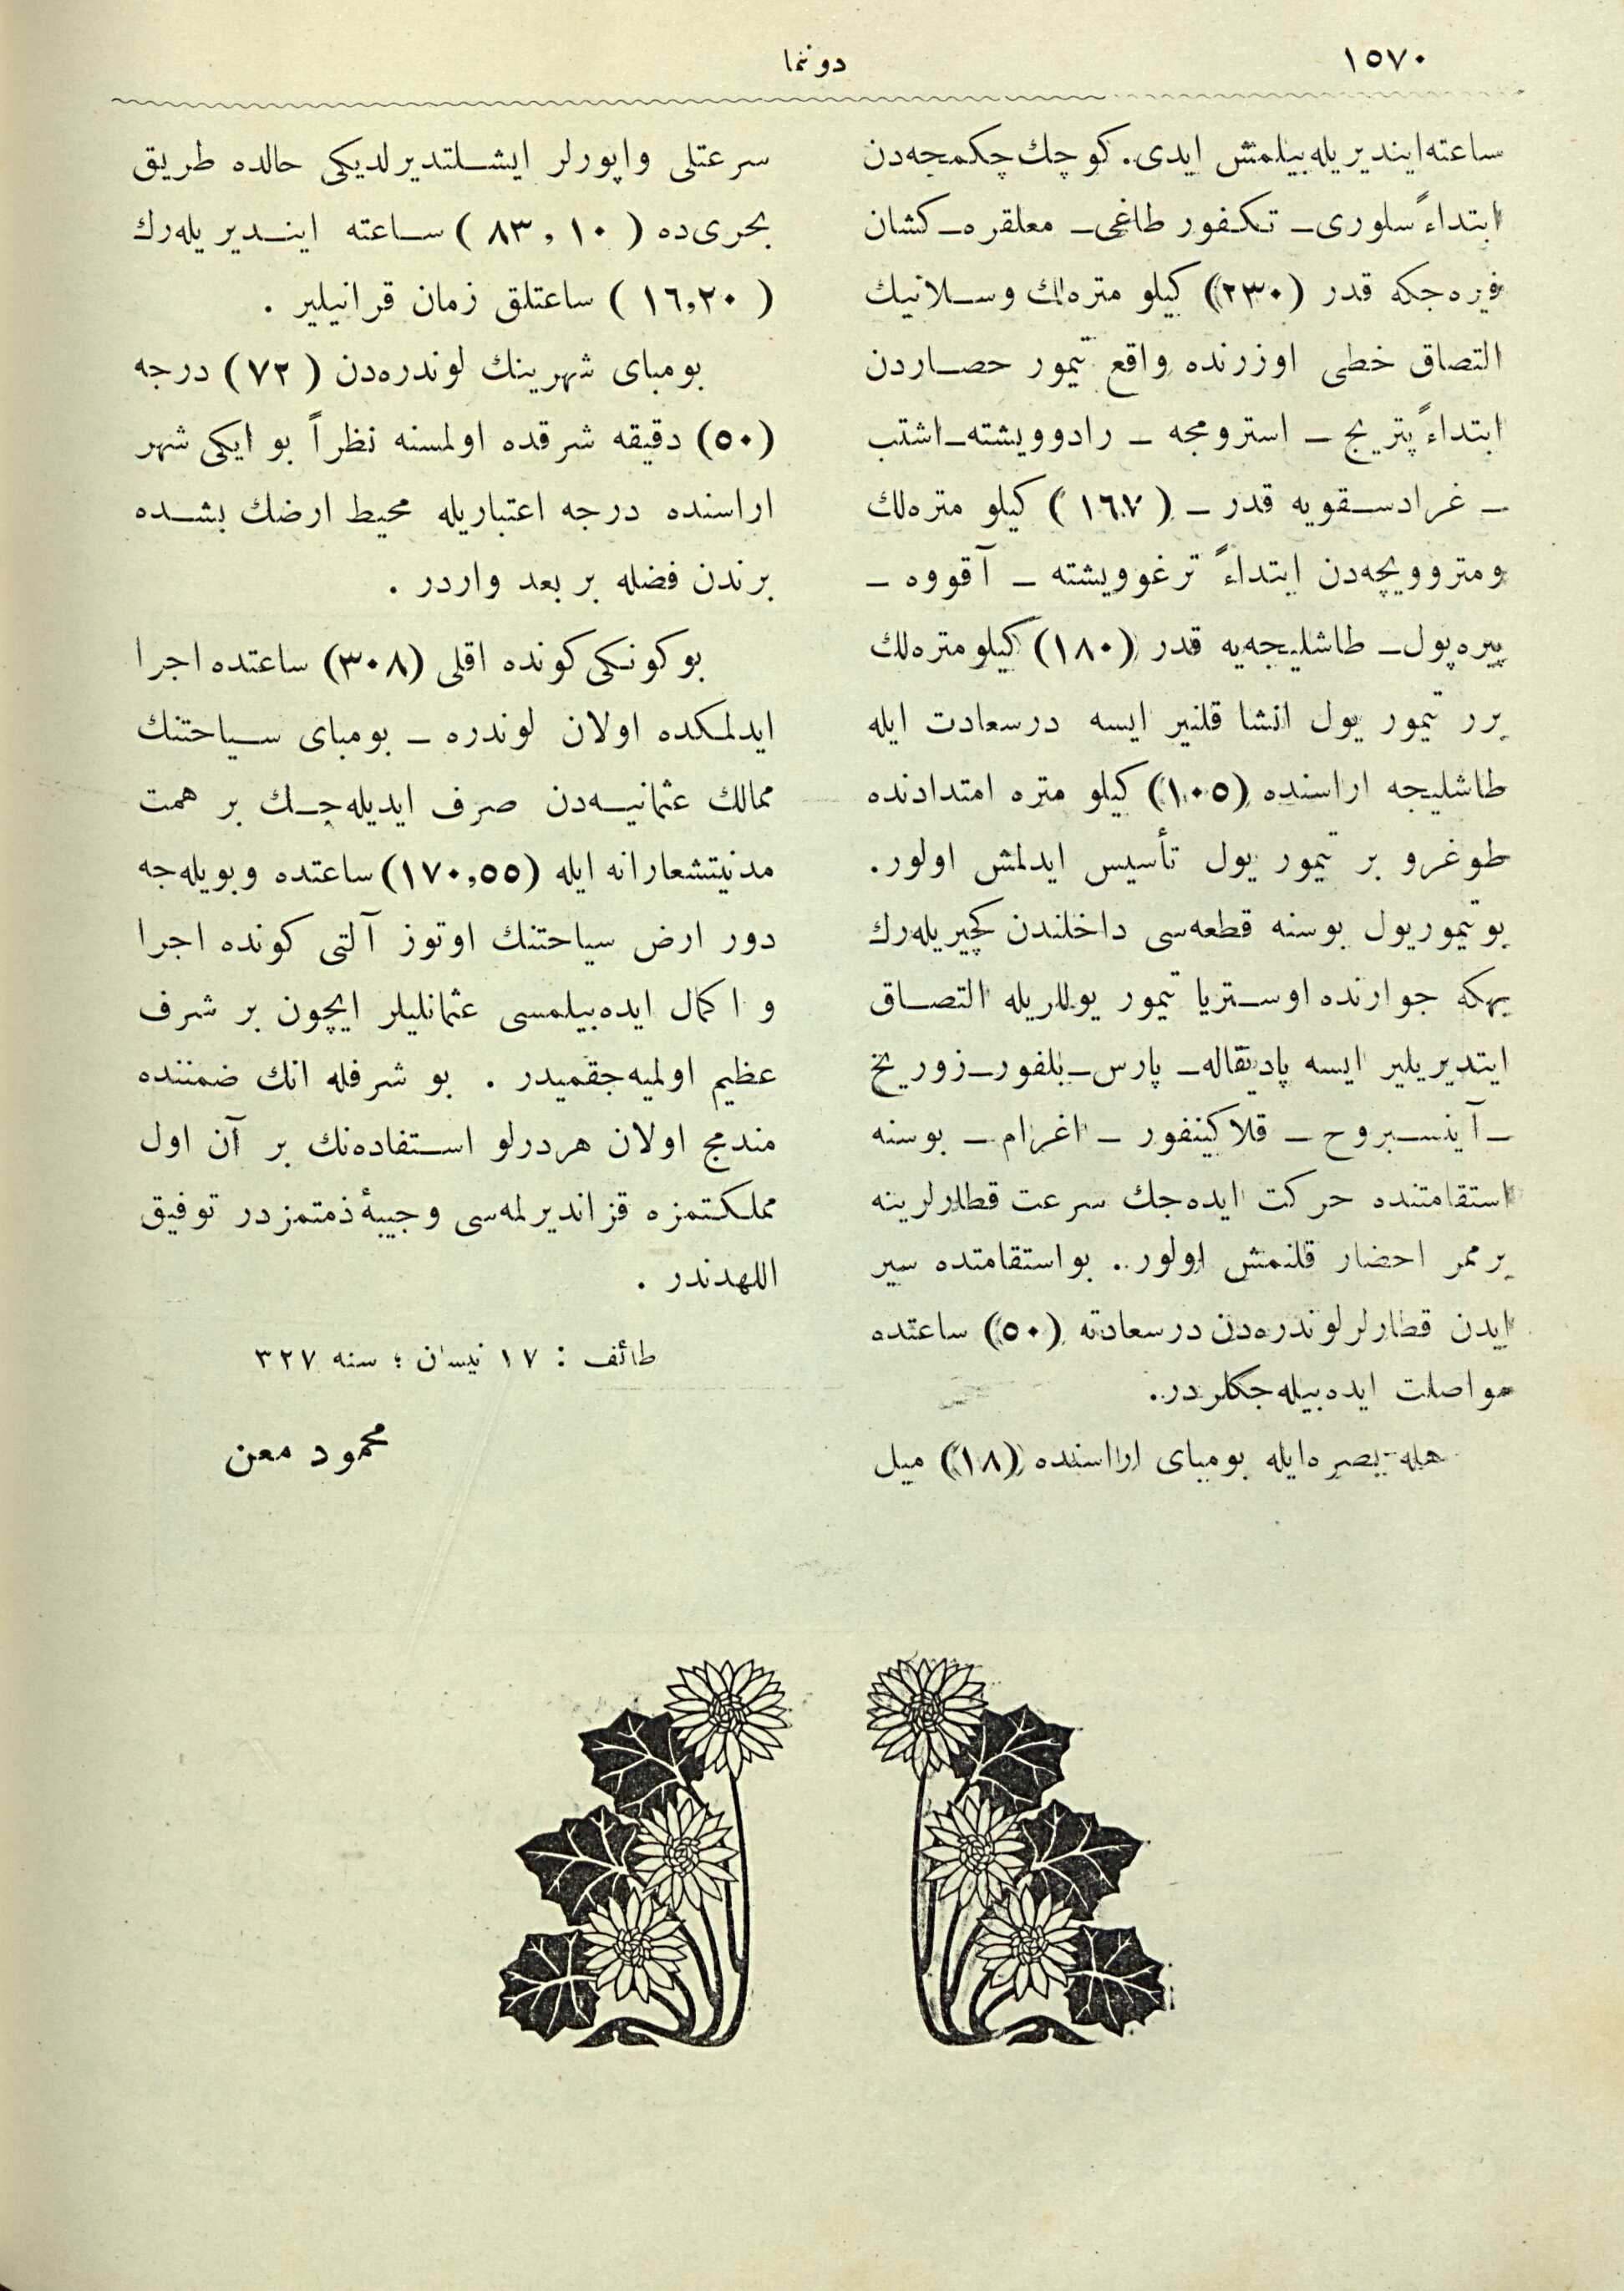 ١٥٧٠
دوننما
ساعته ایندیریله بیلمش ایدی. كوچك چكمجه‌دن
ابتداءً سلوری ـ تكفور طاغی ـ معلقره ـ كشان
فیره‌جكه قدر (٢٣٠) كیلو متره‌لك وسلانیك
التصاق خطی اوزرنده واقع تیمور حصاردن
ابتداءً پتریچ ـ استرومجه ـ رادوویشته ـ اشتب
ـ غرادسقویه قدر ـ (١٦٧) كیلو متره‌لك
ومتروویچه‌دن ابتداءً ترغوویشته ـ آقووه ـ
پیره‌پول ـ طاشلیجه‌یه قدر (١٨٠) كیلومتره‌لك
برر تیمور یول انشا قلنیر ایسه درسعادت ایله
طاشلیجه اراسنده (١٠٠٥) كیلو متره امتدادنده
طوغرو بر تیمور یول تأسیس ایدلمش اولور.
بو تیموریول بوسنه قطعه‌سی داخلندن كچیریله‌رك
بهكه جوارنده اوستریا تیمور یوللریله التصاق
ایتدیریلیر ایسه پادیقاله ـ پارس ـ بلفور ـ زوریخ
ـ آینسبروح ـ قلاكینفور ـ اغرام ـ بوسنه
استقامتنده حركت ایده‌جك سرعت قطارلرینه
برممر احضار قلنمش اولور. بو استقامتده سیر
ایدن قطارلر لوندره‌دن درسعادته (٥٠) ساعتده
مواصلت ایده‌بیله‌جكلردر.
هله بصره ایله بومبای اراسنده (١٨) میل
سرعتلی واپورلر ایشلتدیرلدیكی حالده طریق
بحری‌ده (٨٣,١٠) ساعته ایندیریله‌رك
(١٦,٢٠) ساعتلق زمان قزانیلیر .
بومبای شهرینك لوندره‌دن (٧٢) درجه
(٥٠) دقیقه شرقده اولمسنه نظراً بو ایكی شهر
اراسنده درجه اعتباریله محیط ارضك بشده
برندن فضله بر بعد واردر .
بوكونكی كونده اقلی (٣٠٨) ساعتده اجرا
ایدلمكده اولان لوندره ـ بومبای سیاحتنك
ممالك عثمانیه‌دن صرف ایدیله‌جك بر همت
مدنیتشعارانه ایله (١٧٠,٥٥) ساعتده و بویله‌جه
دور ارض سیاحتنك اوتوز آلتی كونده اجرا
و اكمال ایده‌بیلمسی عثمانلیلر ایچون بر شرف
عظیم اولمیه‌جقمیدر . بو شرفله انك ضمننده
مندمج اولان هردرلو استفاده‌نك بر آن اول
مملكتمزه قزاندیرلمه‌سی وجیبهٔ ذمتمزدر توفیق
اللهدندر .
طائف : ١٧ نیسان ؛ سنه ٣٢٧
محمود معن